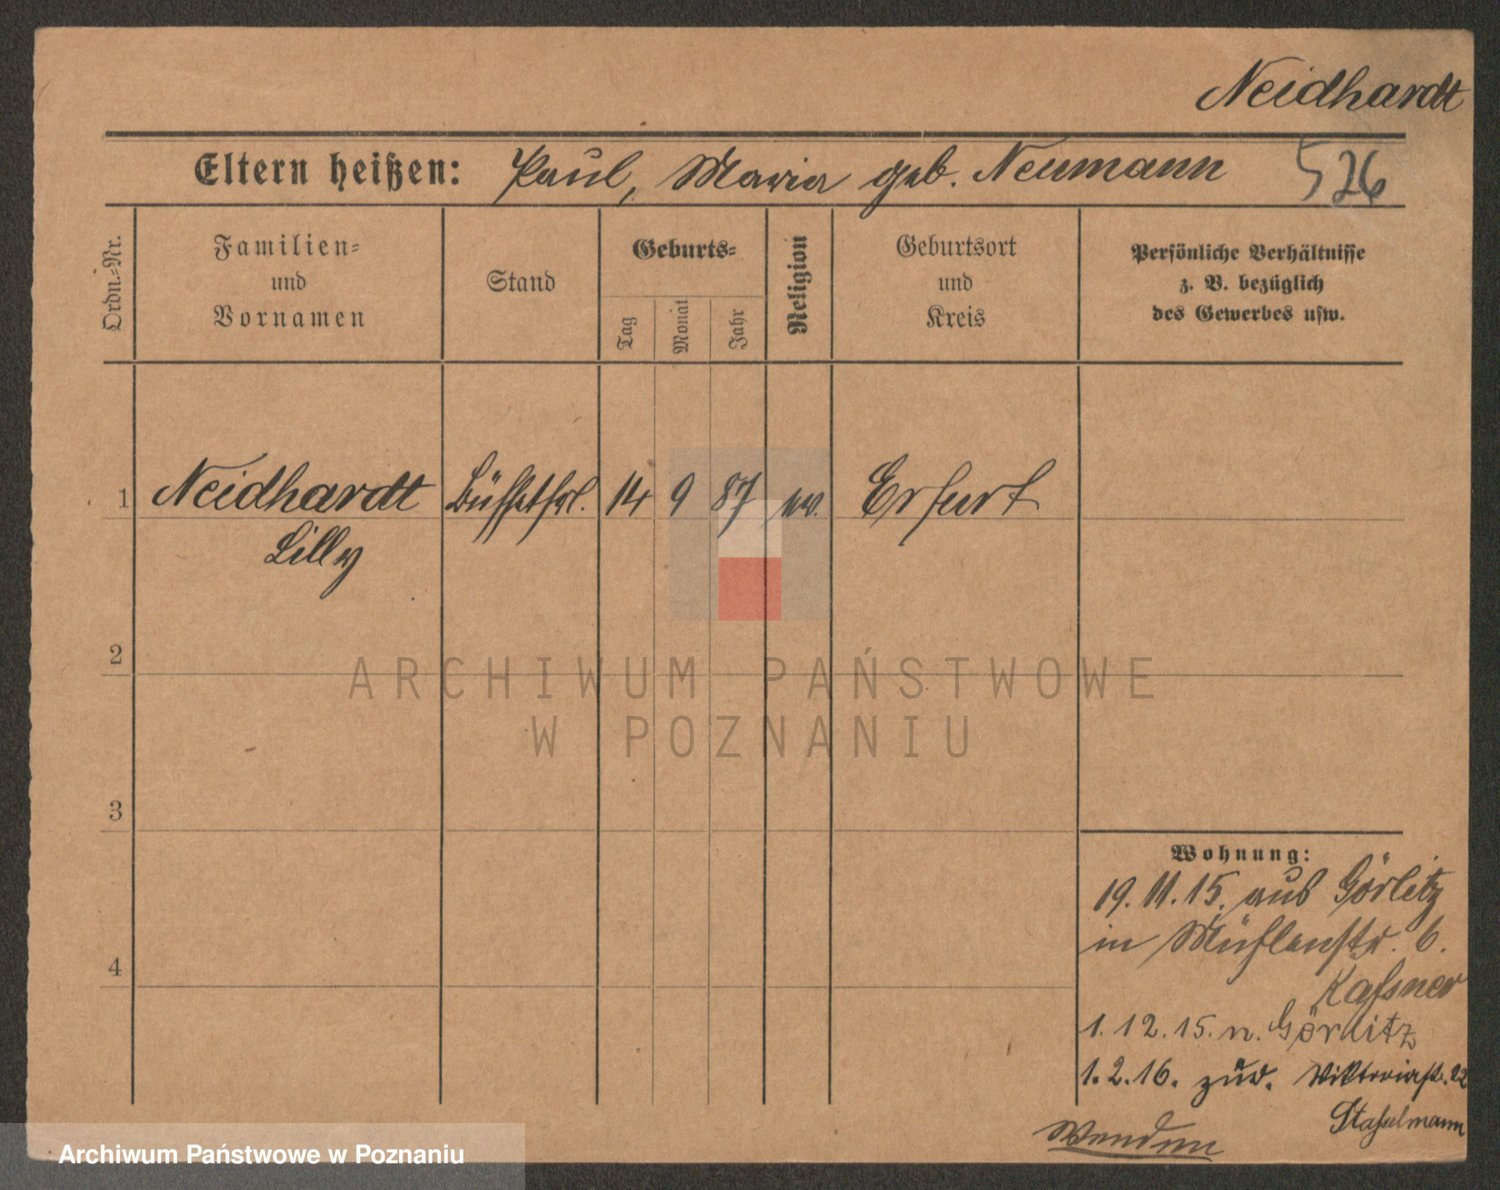 Neidhardt
Eltern heißen: Paul, Maria geb. Neumann 526
Ordn.-Nr.
Familien-
und
Vornamen
Stand
Geburts-
Tag
Monat
Jahr
Religion
Geburtsort
und
Kreis
Persönliche Verhältnisse
z. B. bezüglich
des Gewerbes usw.
1 Neidhardt Büffetfrl. 14 9 87 ev. Erfurt
Lilly
2
3
4
Wohnung:
19.11.15. aus Görlitz
in Mühlenstr. 6.
Kassner
1.12.15. n. Görlitz
1.2.16. zur. Viktoriastr. 22
Wenden
ARCHIWUM PAŃSTWOWE
W POZNANIU
Archiwum Państwowe w Poznaniu